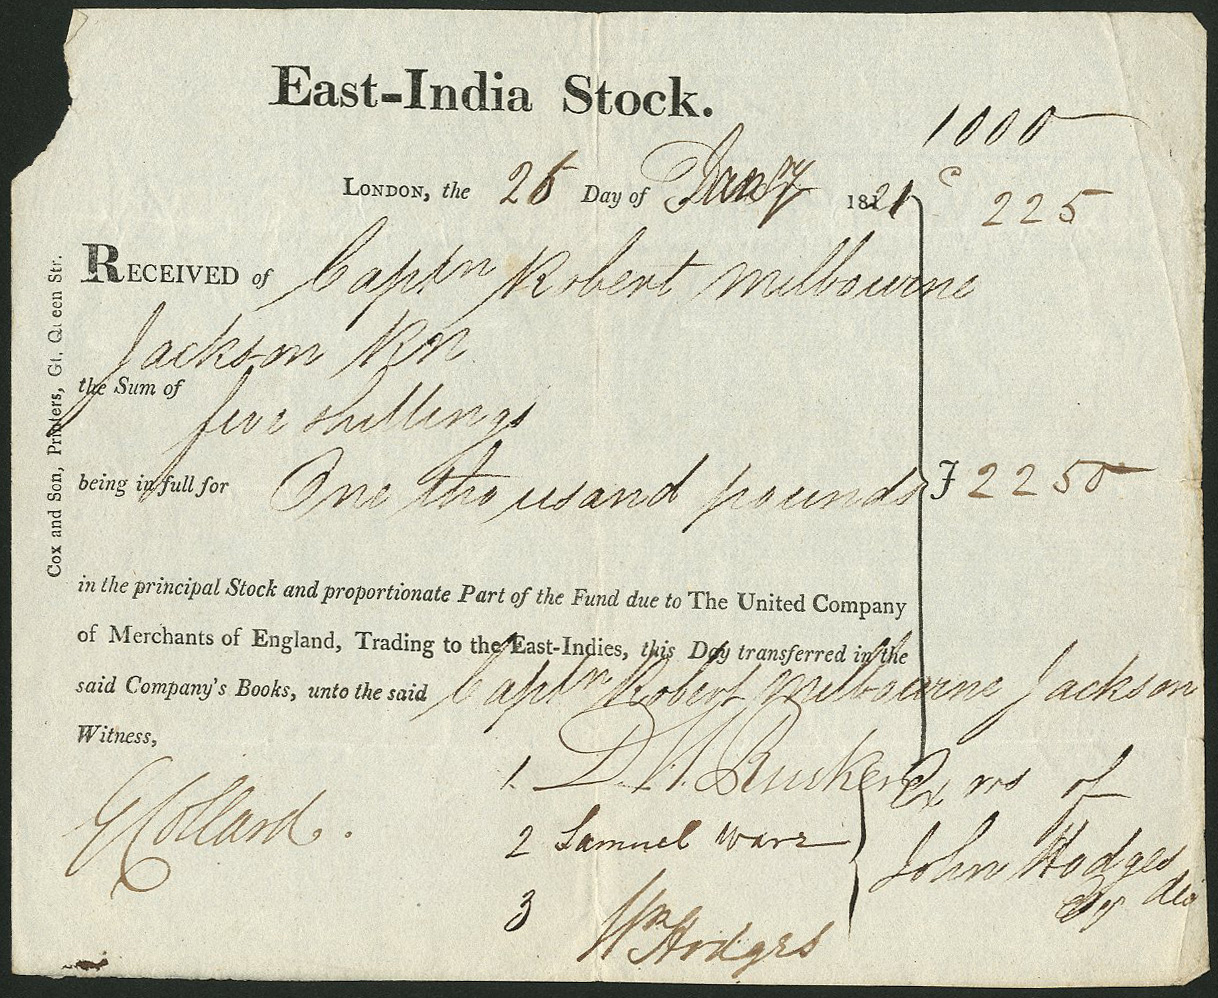 East-India Stock.
1000
LONDON, the 26 Day of Jany 1821
@ 225
RECEIVED of Captn Robert Milbourne
Jackson RN
the Sum of
five shillings
being in full for One thousand pounds
£2250
in the principal Stock and proportionate Part of the Fund due to The United Company
of Merchants of England, Trading to the East-Indies, this Day transferred in the
said Company's Books, unto the said Captn Robert Milbourne Jackson
Witness,
1 D H Rucker
Exrs of
John Hodges
Esqr
G Collard.
2 Samuel Ware
3 Wm Hodges
Cox and Son, Printers, Gt. Queen Str.